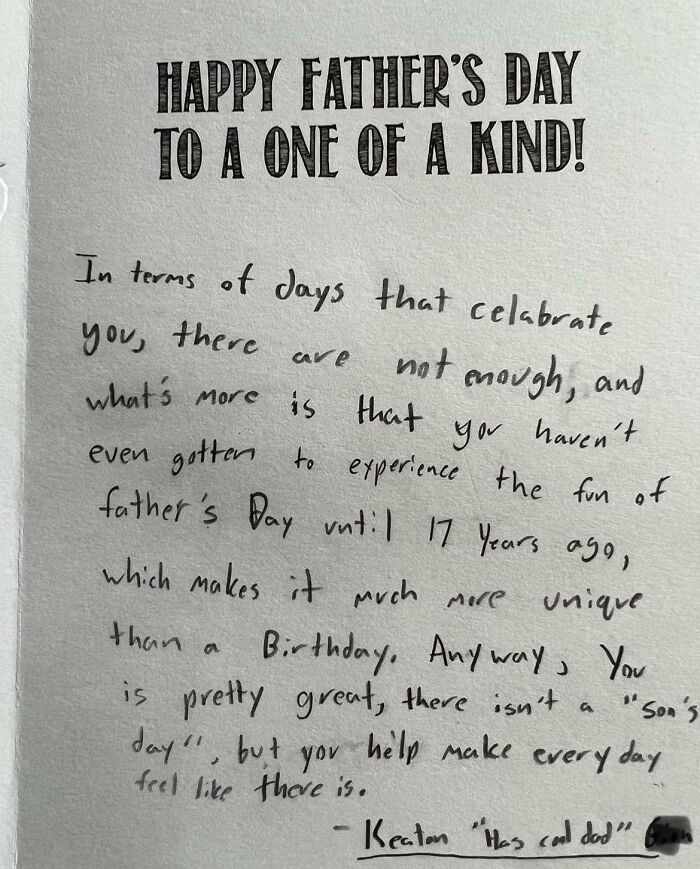 HAPPY FATHER'S DAY
TO A ONE OF A KIND!
In terms of days that celabrate
you, there are not enough, and
what's more is that you haven't
even gotten to experience the fun of
father's Day until 17 Years ago,
which makes it much more unique
than a Birthday. Anyway, You
is pretty great, there isn't a "Son's
day", but you help make every day
feel like there is.
- Keaton "Has cool dad"